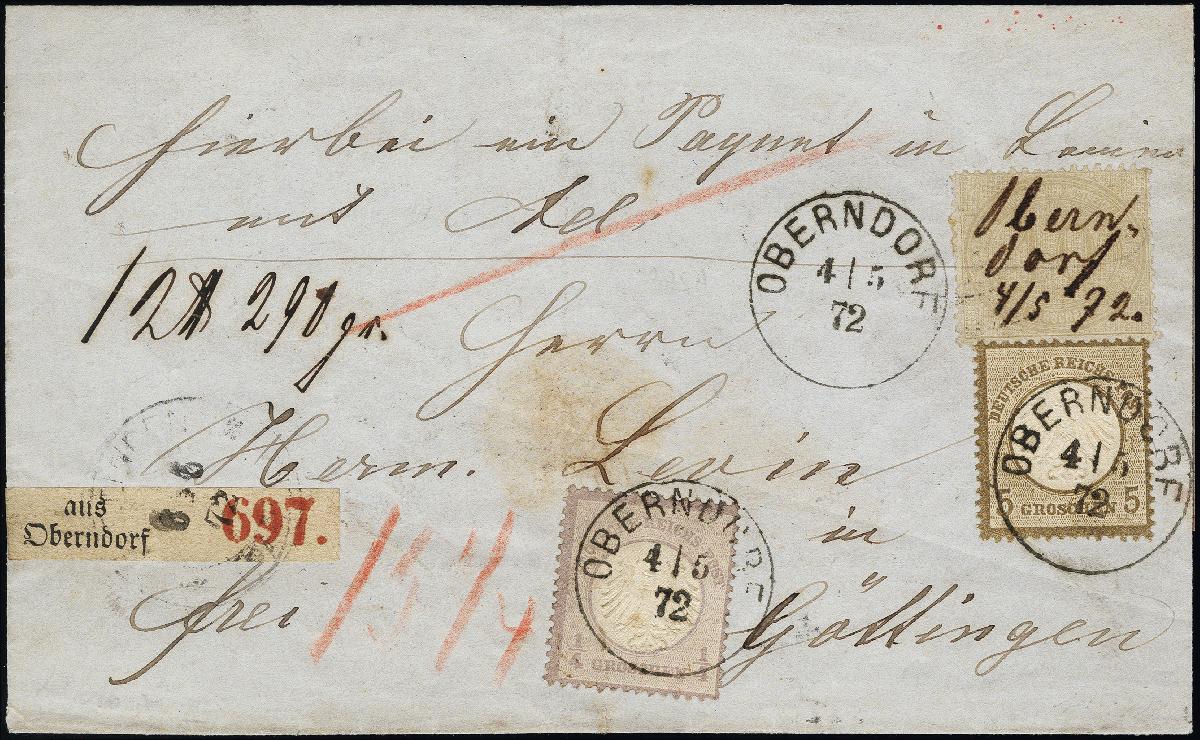 Hierbei ein Paquet in Leinen
mit Adr.
12 ℔ 290 gr.
Herrn
Herm. Levin
in
frei Göttingen
15 1/4
aus
Oberndorf
697.
OBERNDORF
4 | 5
72
Obern-
dorf
4/5 72.
DEUTSCHE REICHS
5 GROSCHEN 5
OBERNDORF
4 | 5
72
REICHS
1/4 GROSCHEN 1/4
OBERNDORF
4 | 5
72